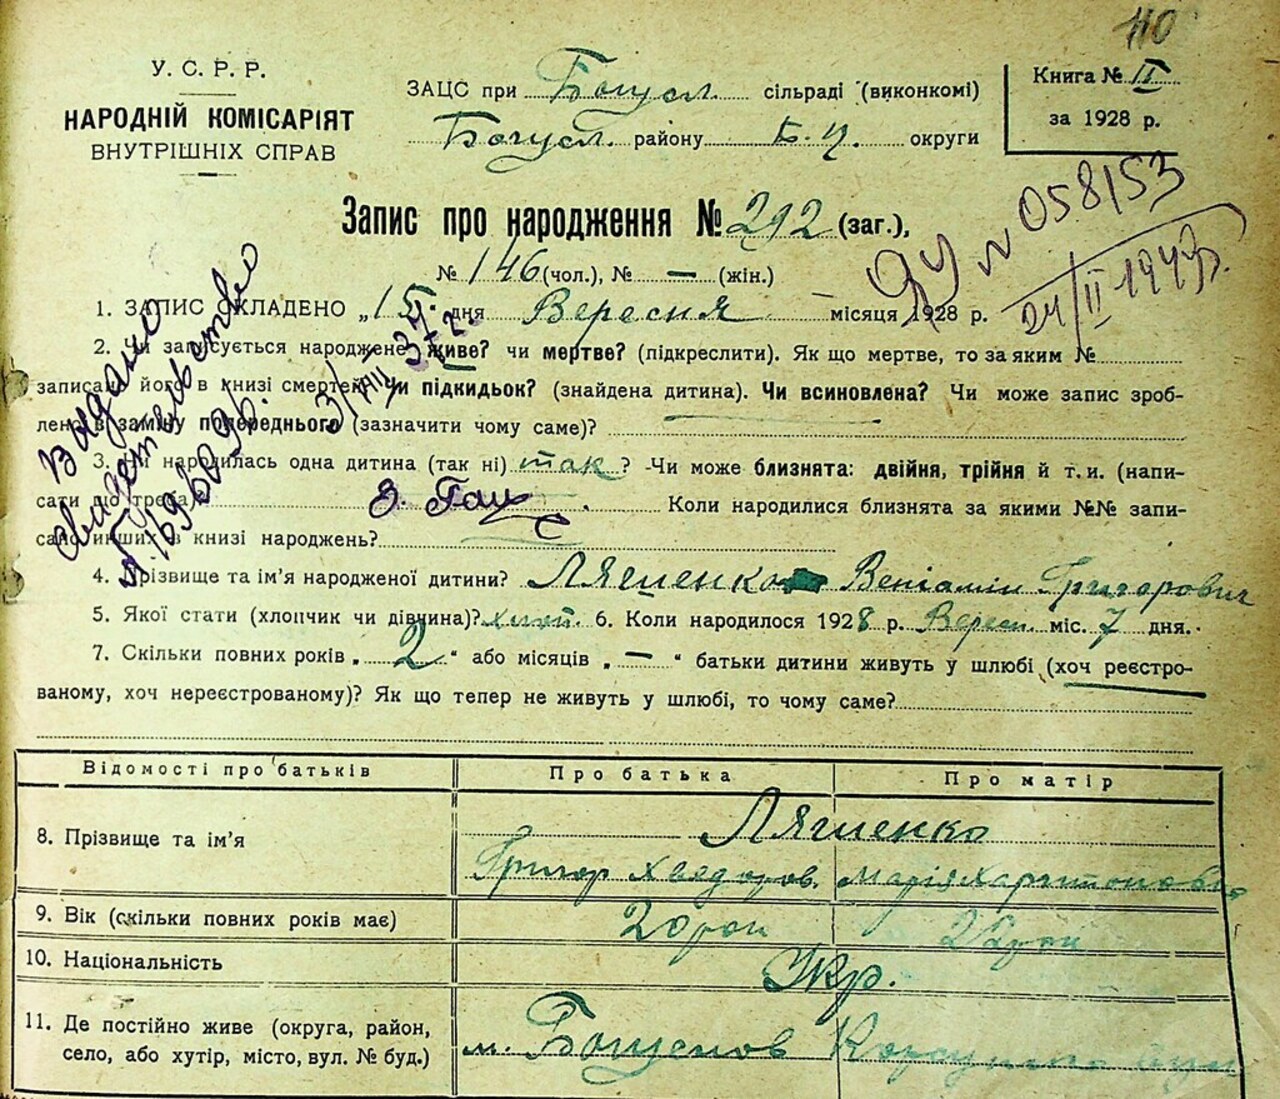 110
У. С. Р. Р.
НАРОДНІЙ КОМІСАРІЯТ
ВНУТРІШНІХ СПРАВ
ЗАЦС при Богусл. сільраді (виконкомі)
Богусл. району Б. Ц. округи
Книга № II
за 1928 р.
Запис про народження № 292 (заг.),
№ 146 (чол.), № — (жін.)
№ 058153
24/II 1947р.
Видано
свидетельство
1. ЗАПИС СКЛАДЕНО „15" дня Вересня місяця 1928 р.
2. Чи записується народжене живе? чи мертве? (підкреслити). Як що мертве, то за яким №
записано його в книзі смертей Чи підкидьок? (знайдена дитина). Чи всиновлена? Чи може запис зроб-
лено в заміну попереднього (зазначити чому саме)?
3. Чи народилась одна дитина (так ні) так ? Чи може близнята: двійня, трійня й т. и. (напи-
сати що треба) Коли народилися близнята за якими №№ запи-
сано инших в книзі народжень?
4. Прізвище та ім'я народженої дитини? Ляшенко Веніамін Григорович
5. Якої стати (хлопчик чи дівчина)? хлоп. 6. Коли народилося 1928 р. Верес. міс. 7 дня.
7. Скільки повних років „ 2 " або місяців „ — " батьки дитини живуть у шлюбі (хоч реєстро-
ваному, хоч нереєстрованому)? Як що тепер не живуть у шлюбі, то чому саме?
Відомості про батьків Про батька Про матір
8. Прізвище та ім'я Ляшенко
Григор Хведоров. Марія Харитоновна
9. Вік (скільки повних років має) 20 рок 22 рок
10. Національність Укр.
11. Де постійно живе (округа, район,
село, або хутір, місто, вул. № буд.) м. Богуслав